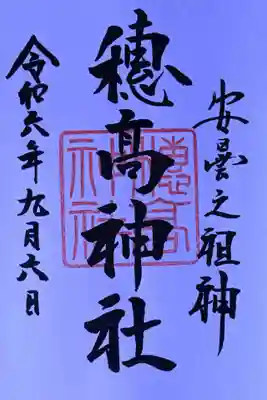 安曇之祖神
穂高神社
令和六年九月六日
穂高神社